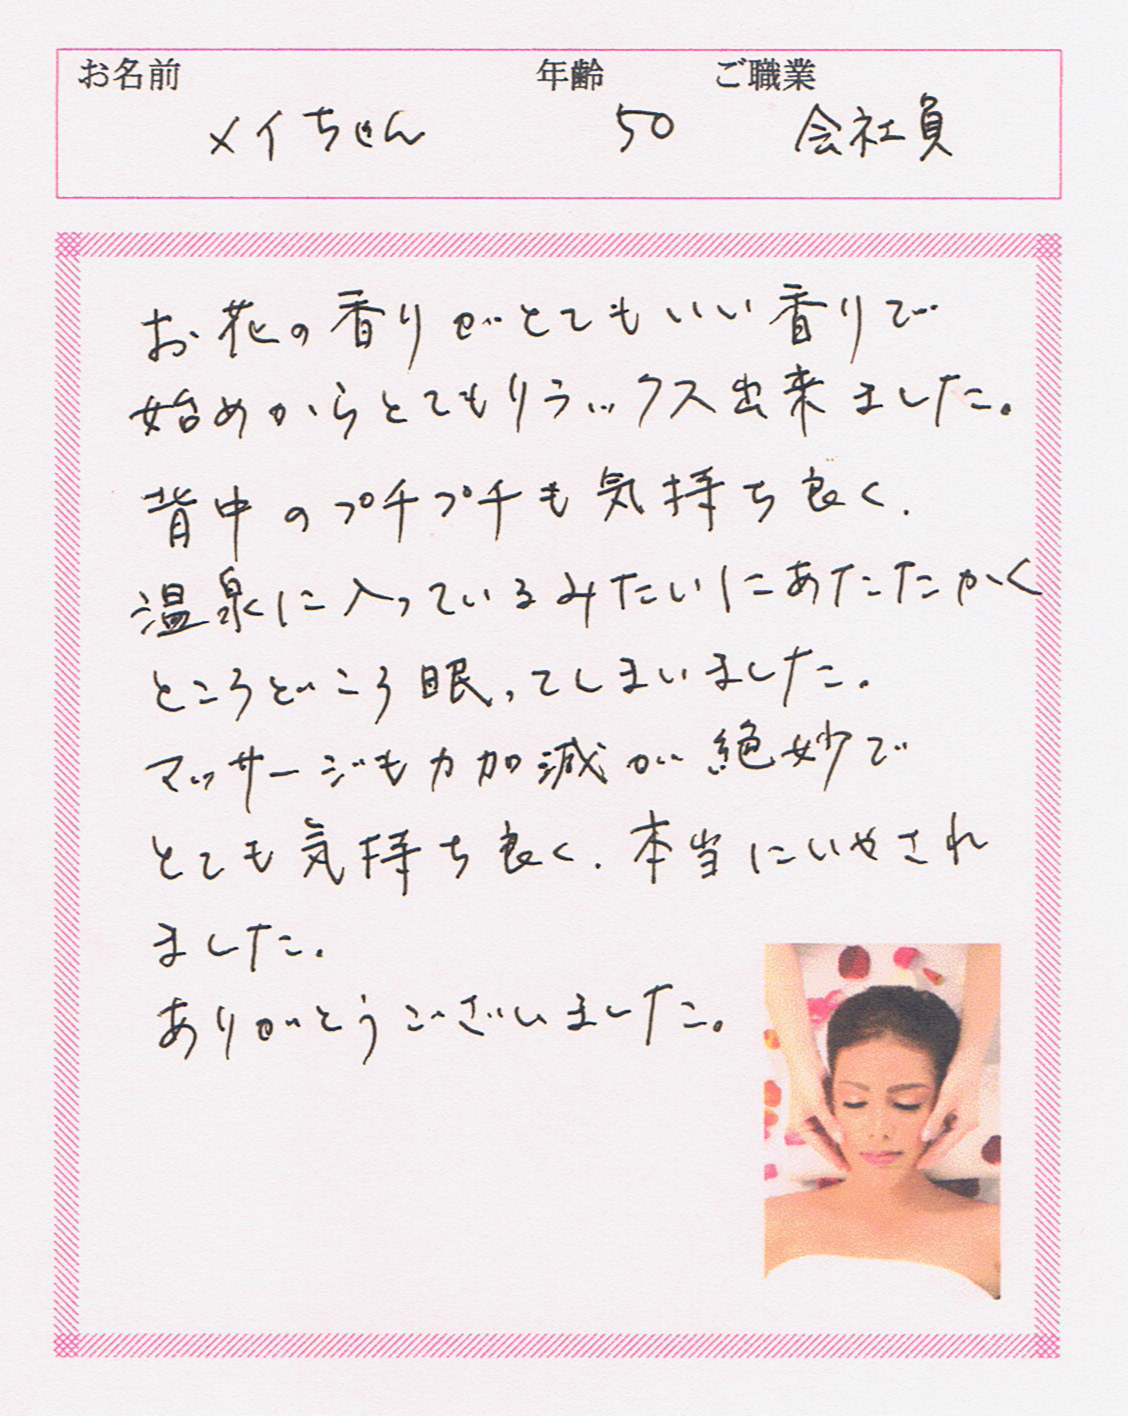 お名前 年齢 ご職業
メイちゃん 50 会社員
お花の香りがとてもいい香りで
始めからとてもリラックス出来ました。
背中のプチプチも気持ち良く、
温泉に入っているみたいにあたたかく
ところどころ眠ってしまいました。
マッサージも力加減が絶妙で
とても気持ち良く、本当にいやされ
ました。
ありがとうございました。